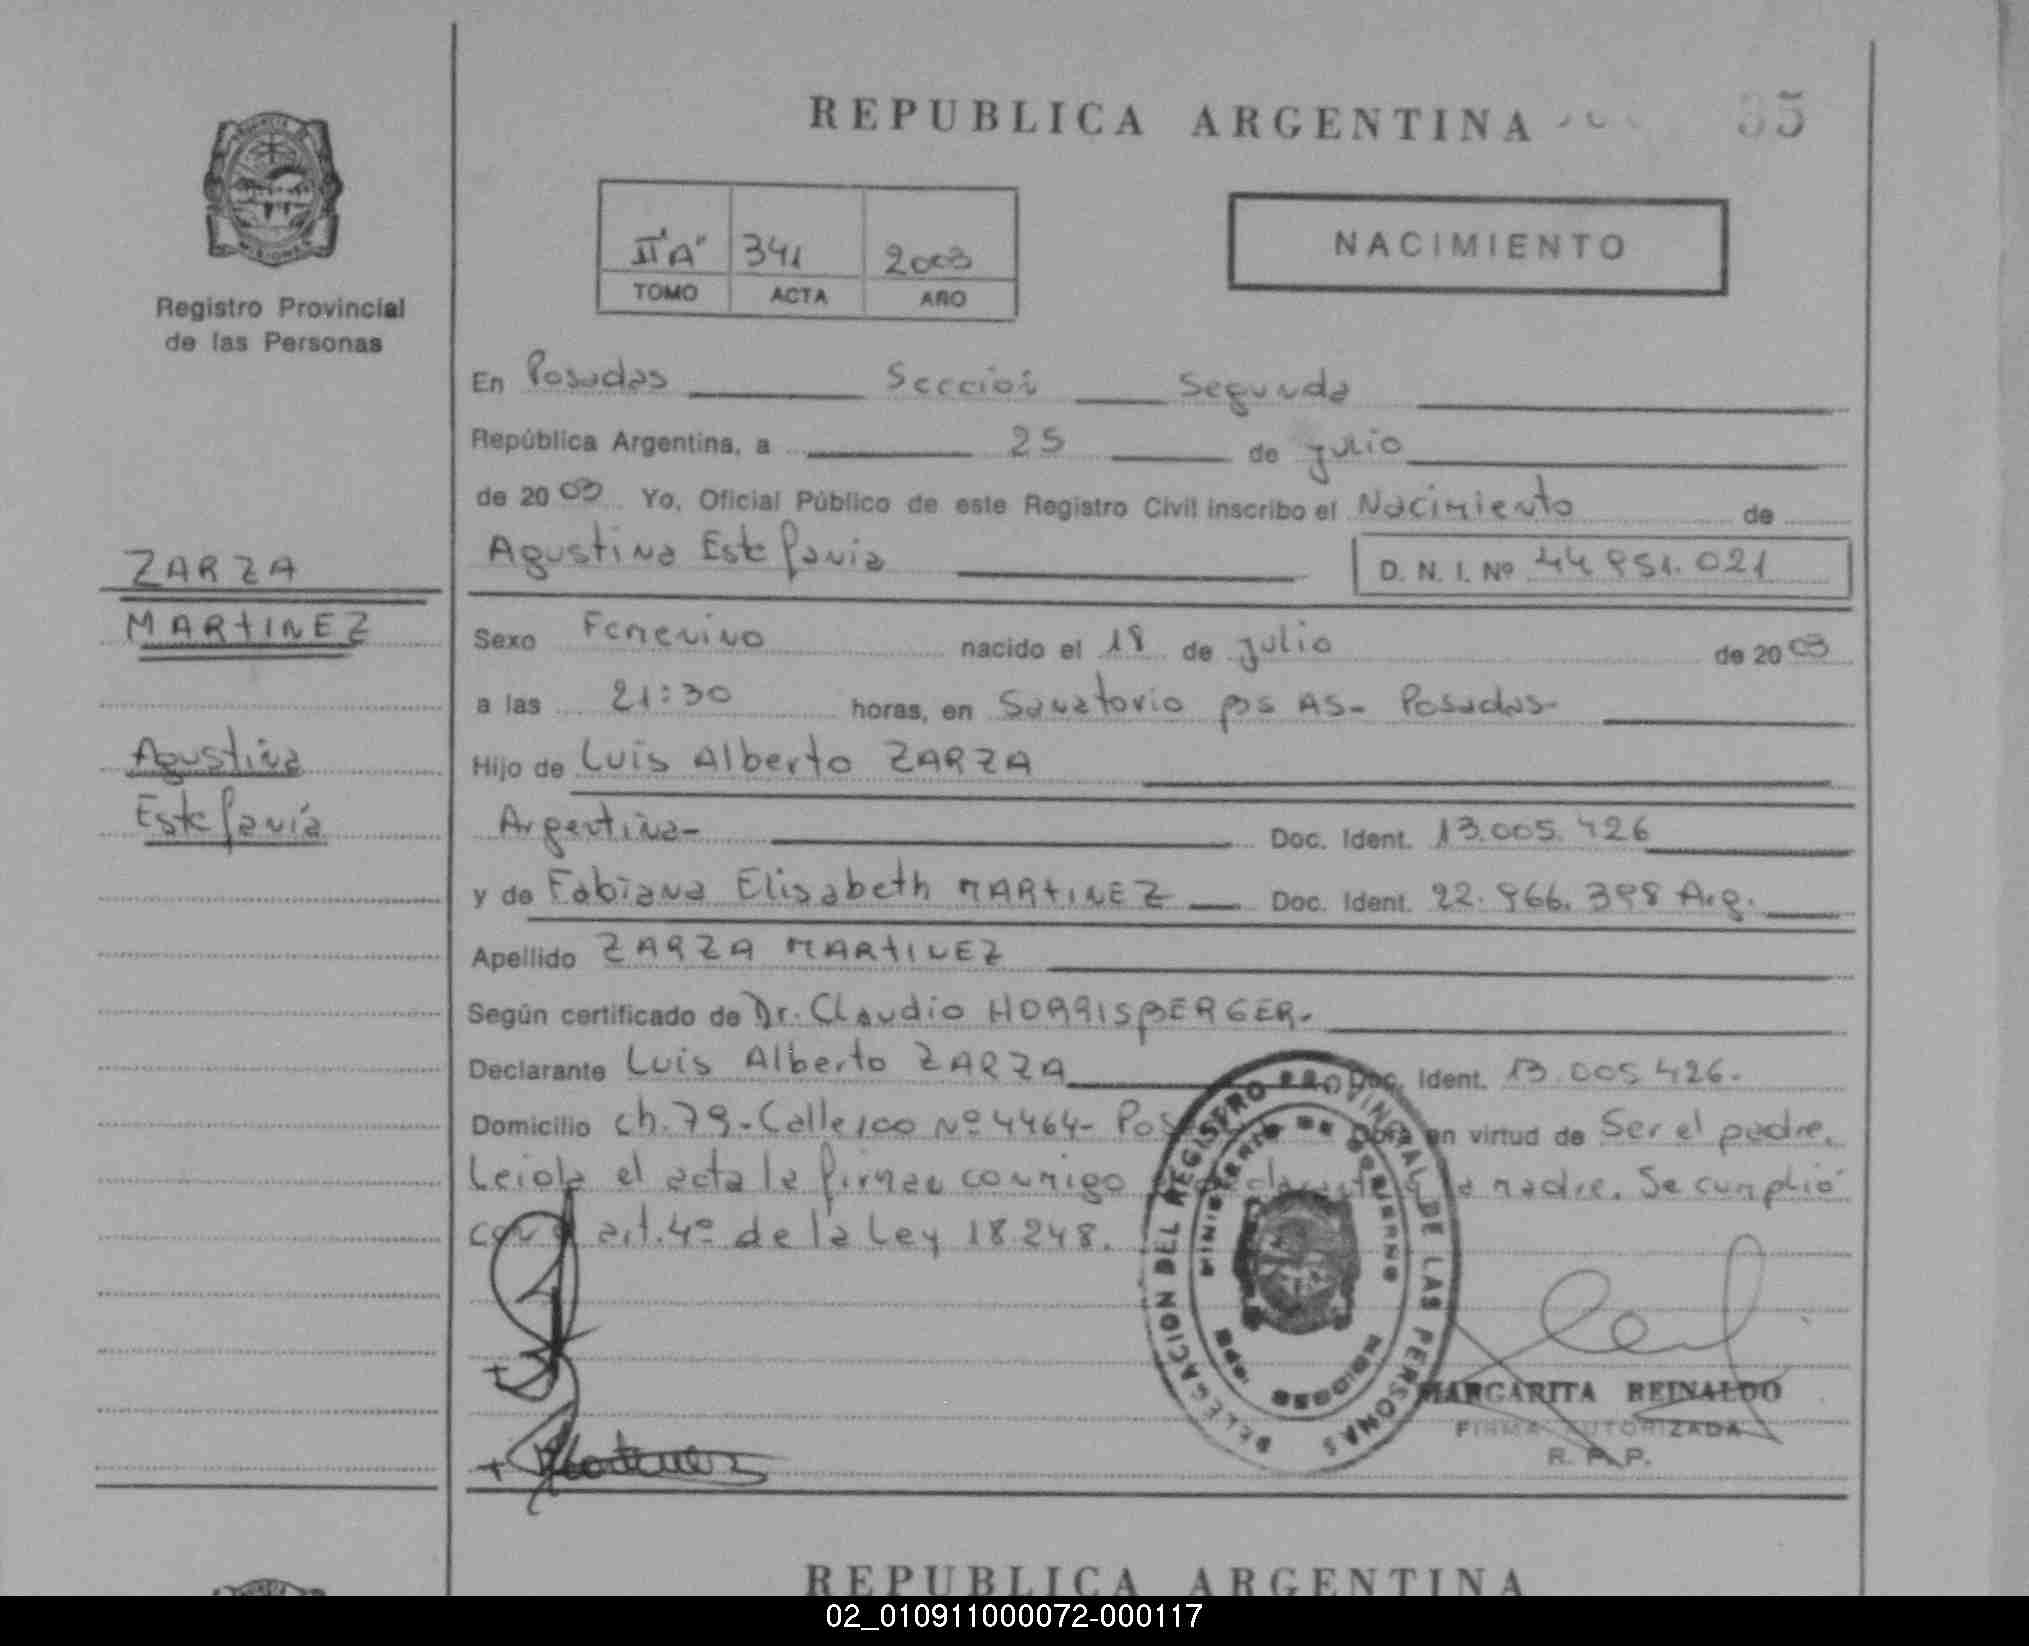 REPUBLICA ARGENTINA
35
Registro Provincial
de las Personas
II "A" 341 2003
TOMO ACTA AÑO
NACIMIENTO
En Posadas Sección Segunda
República Argentina, a 25 de julio
de 2003 Yo, Oficial Público de este Registro Civil inscribo el Nacimiento de
Agustina Estefanía D. N. I. Nº 44.951.021
ZARZA
MARTINEZ
Agustina
Estefanía
Sexo Femenino nacido el 18 de julio de 2003
a las 21:30 horas, en Sanatorio Posadas-
Hijo de Luis Alberto ZARZA
Argentina- Doc. Ident. 13.005.426
y de Fabiana Elisabeth MARTINEZ Doc. Ident. 22.966.398 Arg.
Apellido ZARZA MARTINEZ
Según certificado de Dr. Claudio HORRISBERGER.
Declarante Luis Alberto ZARZA Doc. Ident. 13.005.426.
Domicilio ch. 79-Calle 100 Nº 4464- Obra en virtud de Ser el padre.
Leida el acta la firman conmigo madre. Se cumplió
con el art. 4º de la Ley 18.248.
DELEGACION DEL REGISTRO PROVINCIAL DE LAS PERSONAS
MINISTERIO DE GOBIERNO
MISIONES
MARGARITA REINALDO
FIRMA AUTORIZADA
R. P. P.
REPUBLICA ARGENTINA
02_010911000072-000117